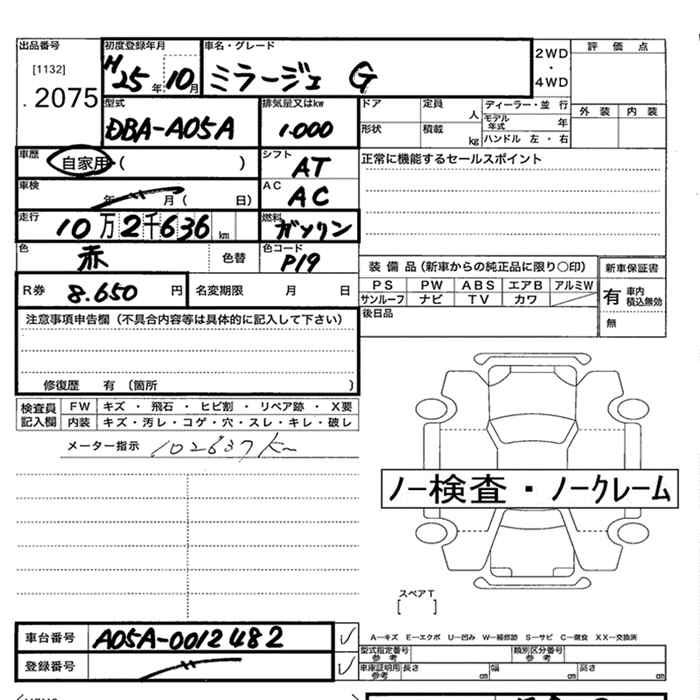 出品番号 初度登録年月 車名・グレード 2WD 評価点
[1132] H25年10月 ミラージュ G ・
2075 4WD
型式 排気量又はkw ドア 定員 人 ディーラー・並 行 外装 内装
DBA-A05A 1.000 形状 積載 kg モデル年式 年
ハンドル 左・右
車歴 自家用 ( ) シフト AT 正常に機能するセールスポイント
車検 年 月 ( 日) AC AC
走行 10万2千636km 燃料 ガソリン
色 赤 色替 色コード P19
装備品(新車からの純正品に限り○印) 新車保証書
R券 8.650円 名変期限 月 日 PS PW ABS エアB アルミW 有 車内積込無効
サンルーフ ナビ TV カワ
注意事項申告欄(不具合内容等は具体的に記入して下さい) 後日品 無
修復歴 有 (箇所 )
検査員記入欄 FW キズ・飛石・ヒビ割・リペア跡・X要
内装 キズ・汚レ・コゲ・穴・スレ・キレ・破レ
メーター指示 102637km
ノー検査・ノークレーム
スペアT
[ ]
車台番号 A05A-0012482 A−キズ E−エクボ U−凹み W−補修跡 S−サビ C−腐食 XX−交換済
登録番号 型式指定番号 参考 類別区分番号 参考
車庫証明用 参考 長さ cm 幅 cm 高さ cm